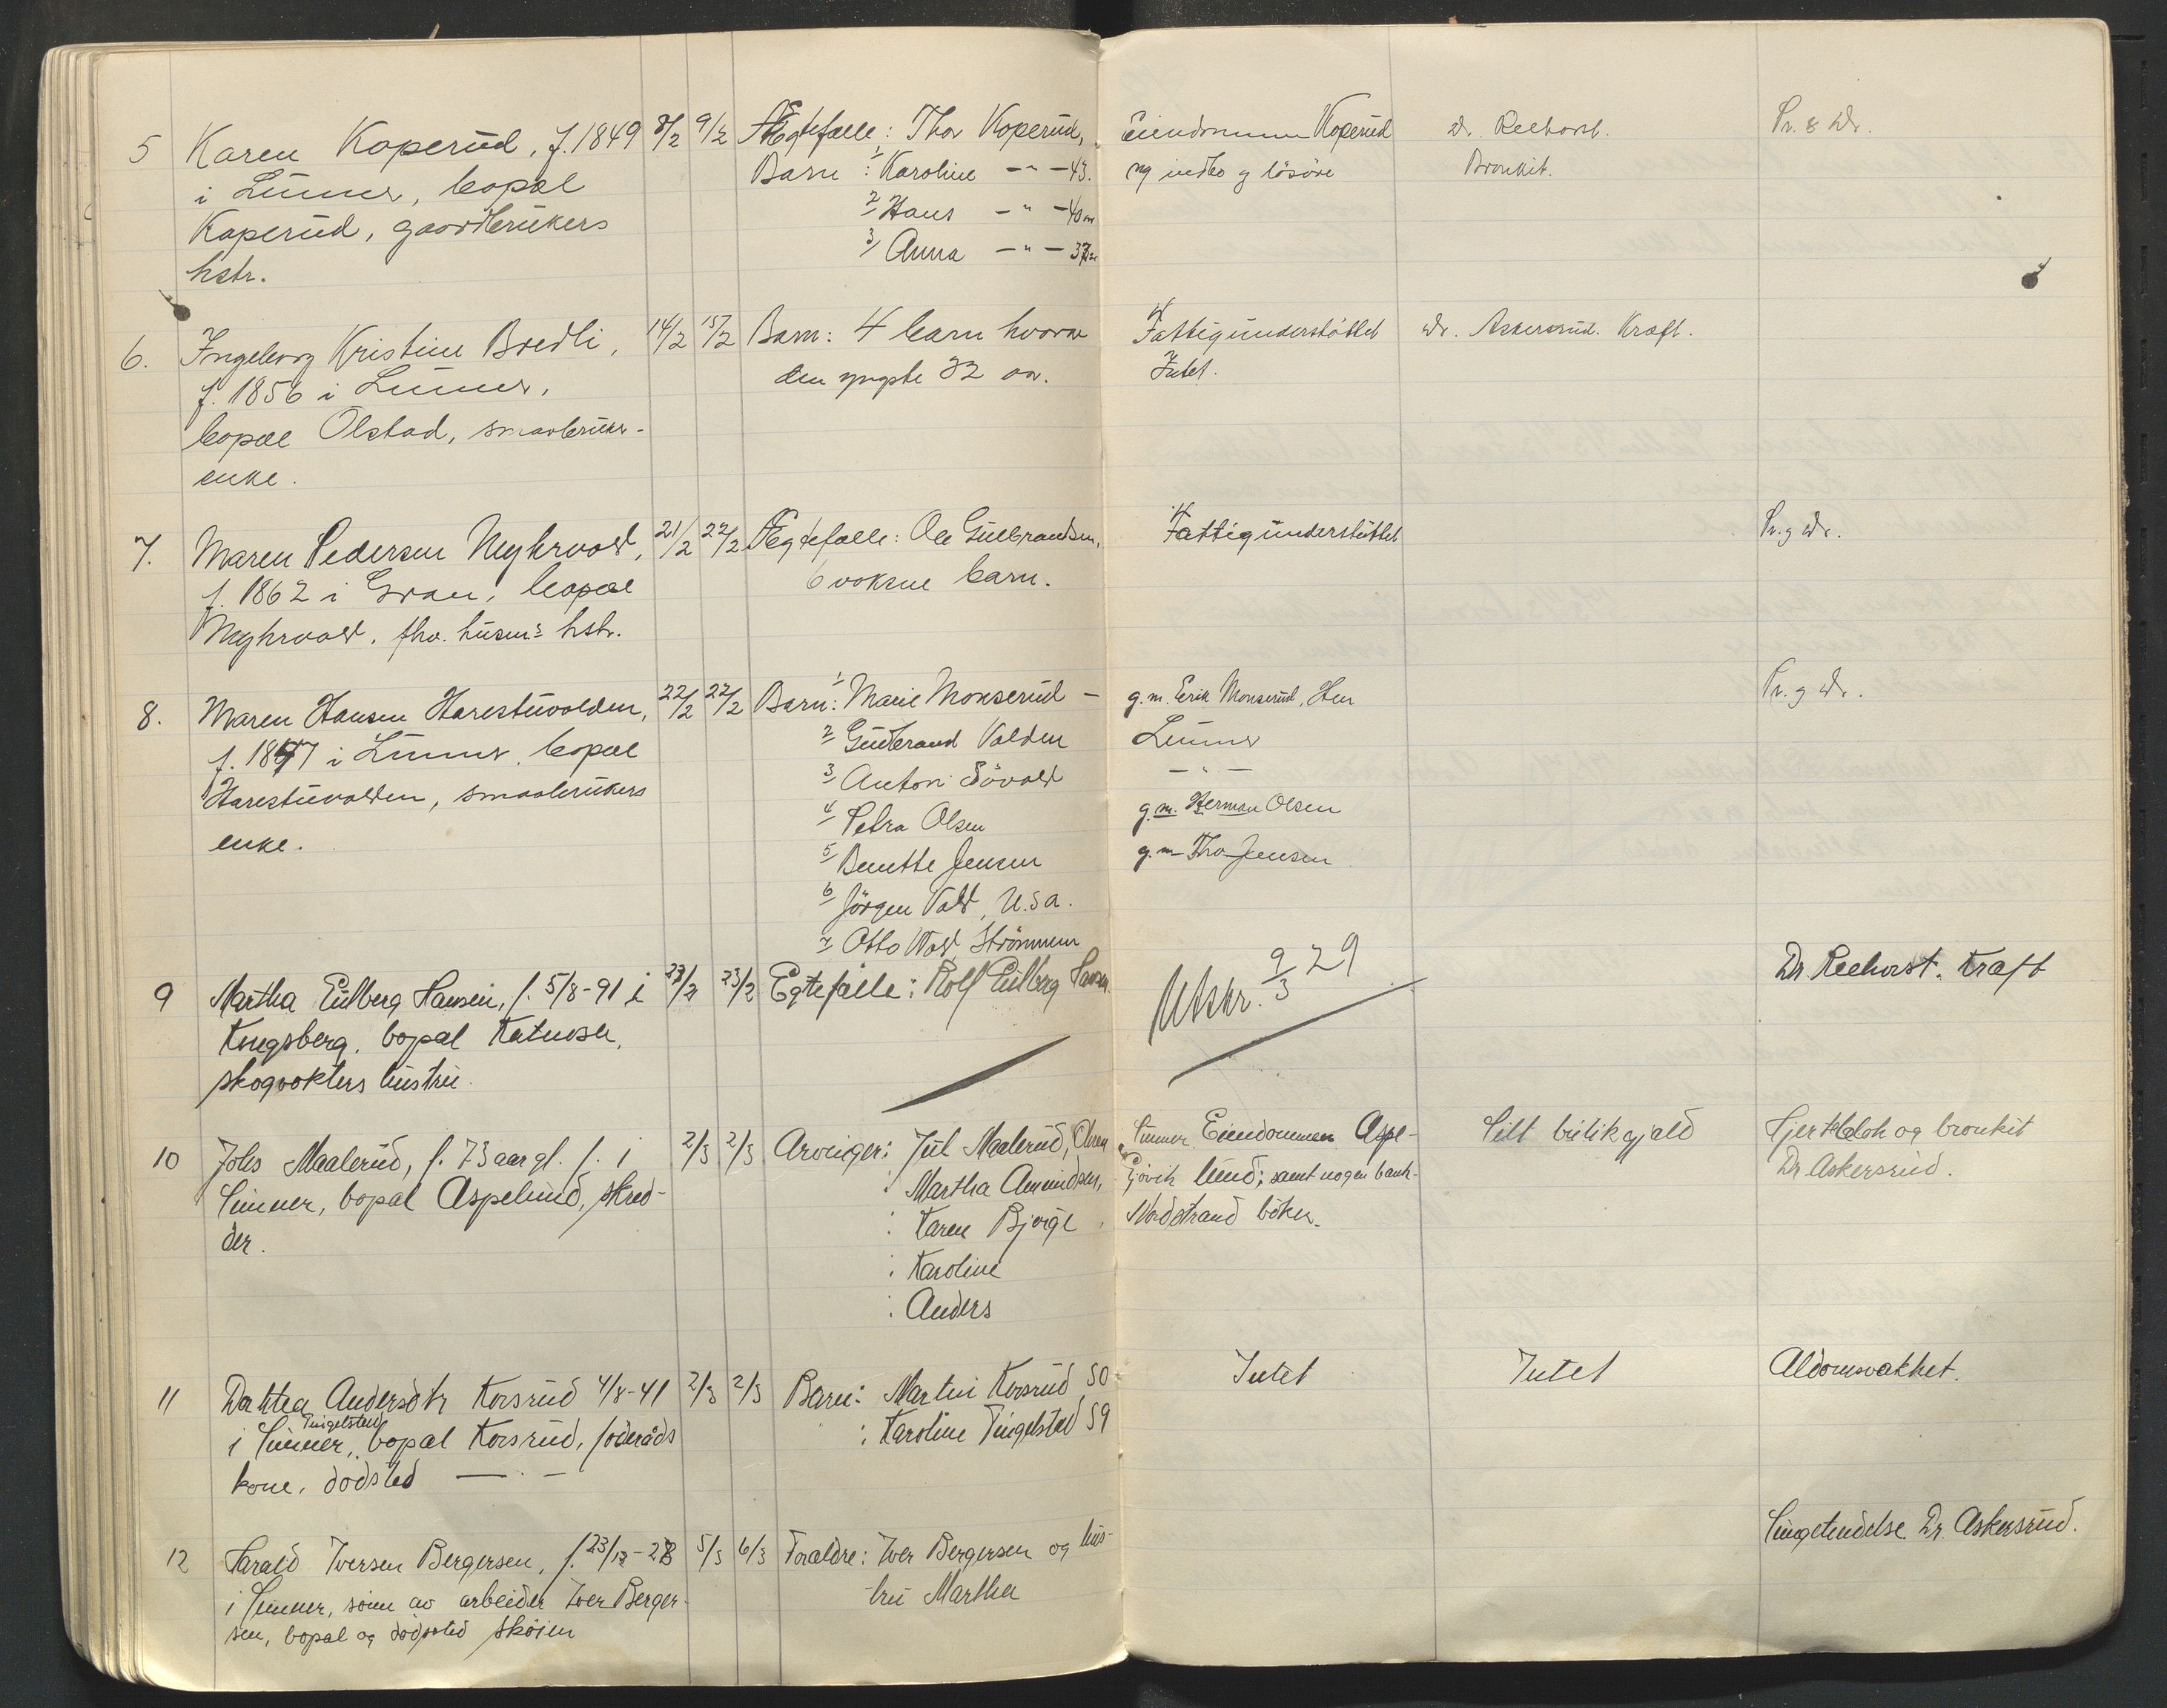 5 Karen Koperud, f. 1849 8/2 9/2 Ægtefælle: Thor Koperud, Eiendommen Koperud Dr. Reehorst. Pr. & Dr.
i Lunner, bopæl Barn : 1/ Karoline -"- 43. og indbo og lösöre Bronkit.
Koperud, gaardbrukers 2/ Hans -"- 40
hstr. 3/ Anna -"- 37
6. Ingeborg Kristine Bredli, 14/2 15/2 Barn: 4 barn hvorav Fattigunderstöttet Dr. Askersrud. Kræft.
f. 1856 i Lunner, den yngste 32 aar. Intet.
bopæl Ölstad, smaabruker-
enke.
7. Maren Pedersen Myhrvold, 21/2 22/2 Ægtefælle: Ole Gulbrandsen, Fattigunderstöttet Pr. g Dr.
f. 1862 i Gran, bopæl 6 voksne barn.
Myhrvold, fhv. husm:s hstr.
8. Maren Hansen Harestuvolden, 22/2 22/2 Barn: 1/ Marie Monserud - g.m. Erik Monserud, Her Pr. g Dr.
f. 1847 i Lunner, bopæl 2/ Gudbrand Volden Lunner
Harestuvolden, smaabrukers 3/ Anton Sövold -"-
enke. 4/ Petra Olsen g.m. Herman Olsen
5/ Benette Jensen g.m Thv Jensen
6/ Jörgen Vold, U.S.A.
7/ Otto Vold, Strömmen
9 Martha Eulberg Hansen, f. 5/8-91 i 23/2 23/2 Egtefælle: Rolf Eulberg Hansen. Utskr. 9/3 29 Dr Reehorst. Kraft
Kongsberg, bopæl Katnosa,
skogvokters hustru.
10 Johs Maalerud, f. 73 aar gl. f. i 2/3 2/3 Arvinger: Jul Maalerud, Lunner Eiendommen Aspe- Litt butikgjæld Hjerteklok og bronkit
Lunner, bopæl Aspelund, skred- : Martha Amundsen, Gjövik lund; samt nogen bank- Dr Askersrud.
der. : Karen Bjørge, Nordstrand böker.
: Karoline
: Anders
11 Dorthea Andersdtr Korsrud 4/8-41 2/3 2/3 Barn: Martin Korsrud 50 Intet Intet Aldomsvækket.
Tingelstad
i Lunner, bopæl Korsrud, föderåds : Karoline Tingelstad 59
kone, dödsted -"-
12 Harald Iversen Bergersen, f. 23/12-28 5/3 6/3 Forældre: Iver Bergersen og hus- Lungebetendelse. Dr. Askersrud.
i Lunner, sönn av arbeider Iver Berger- tru Martha
sen, bopæl og dödssted Sköien